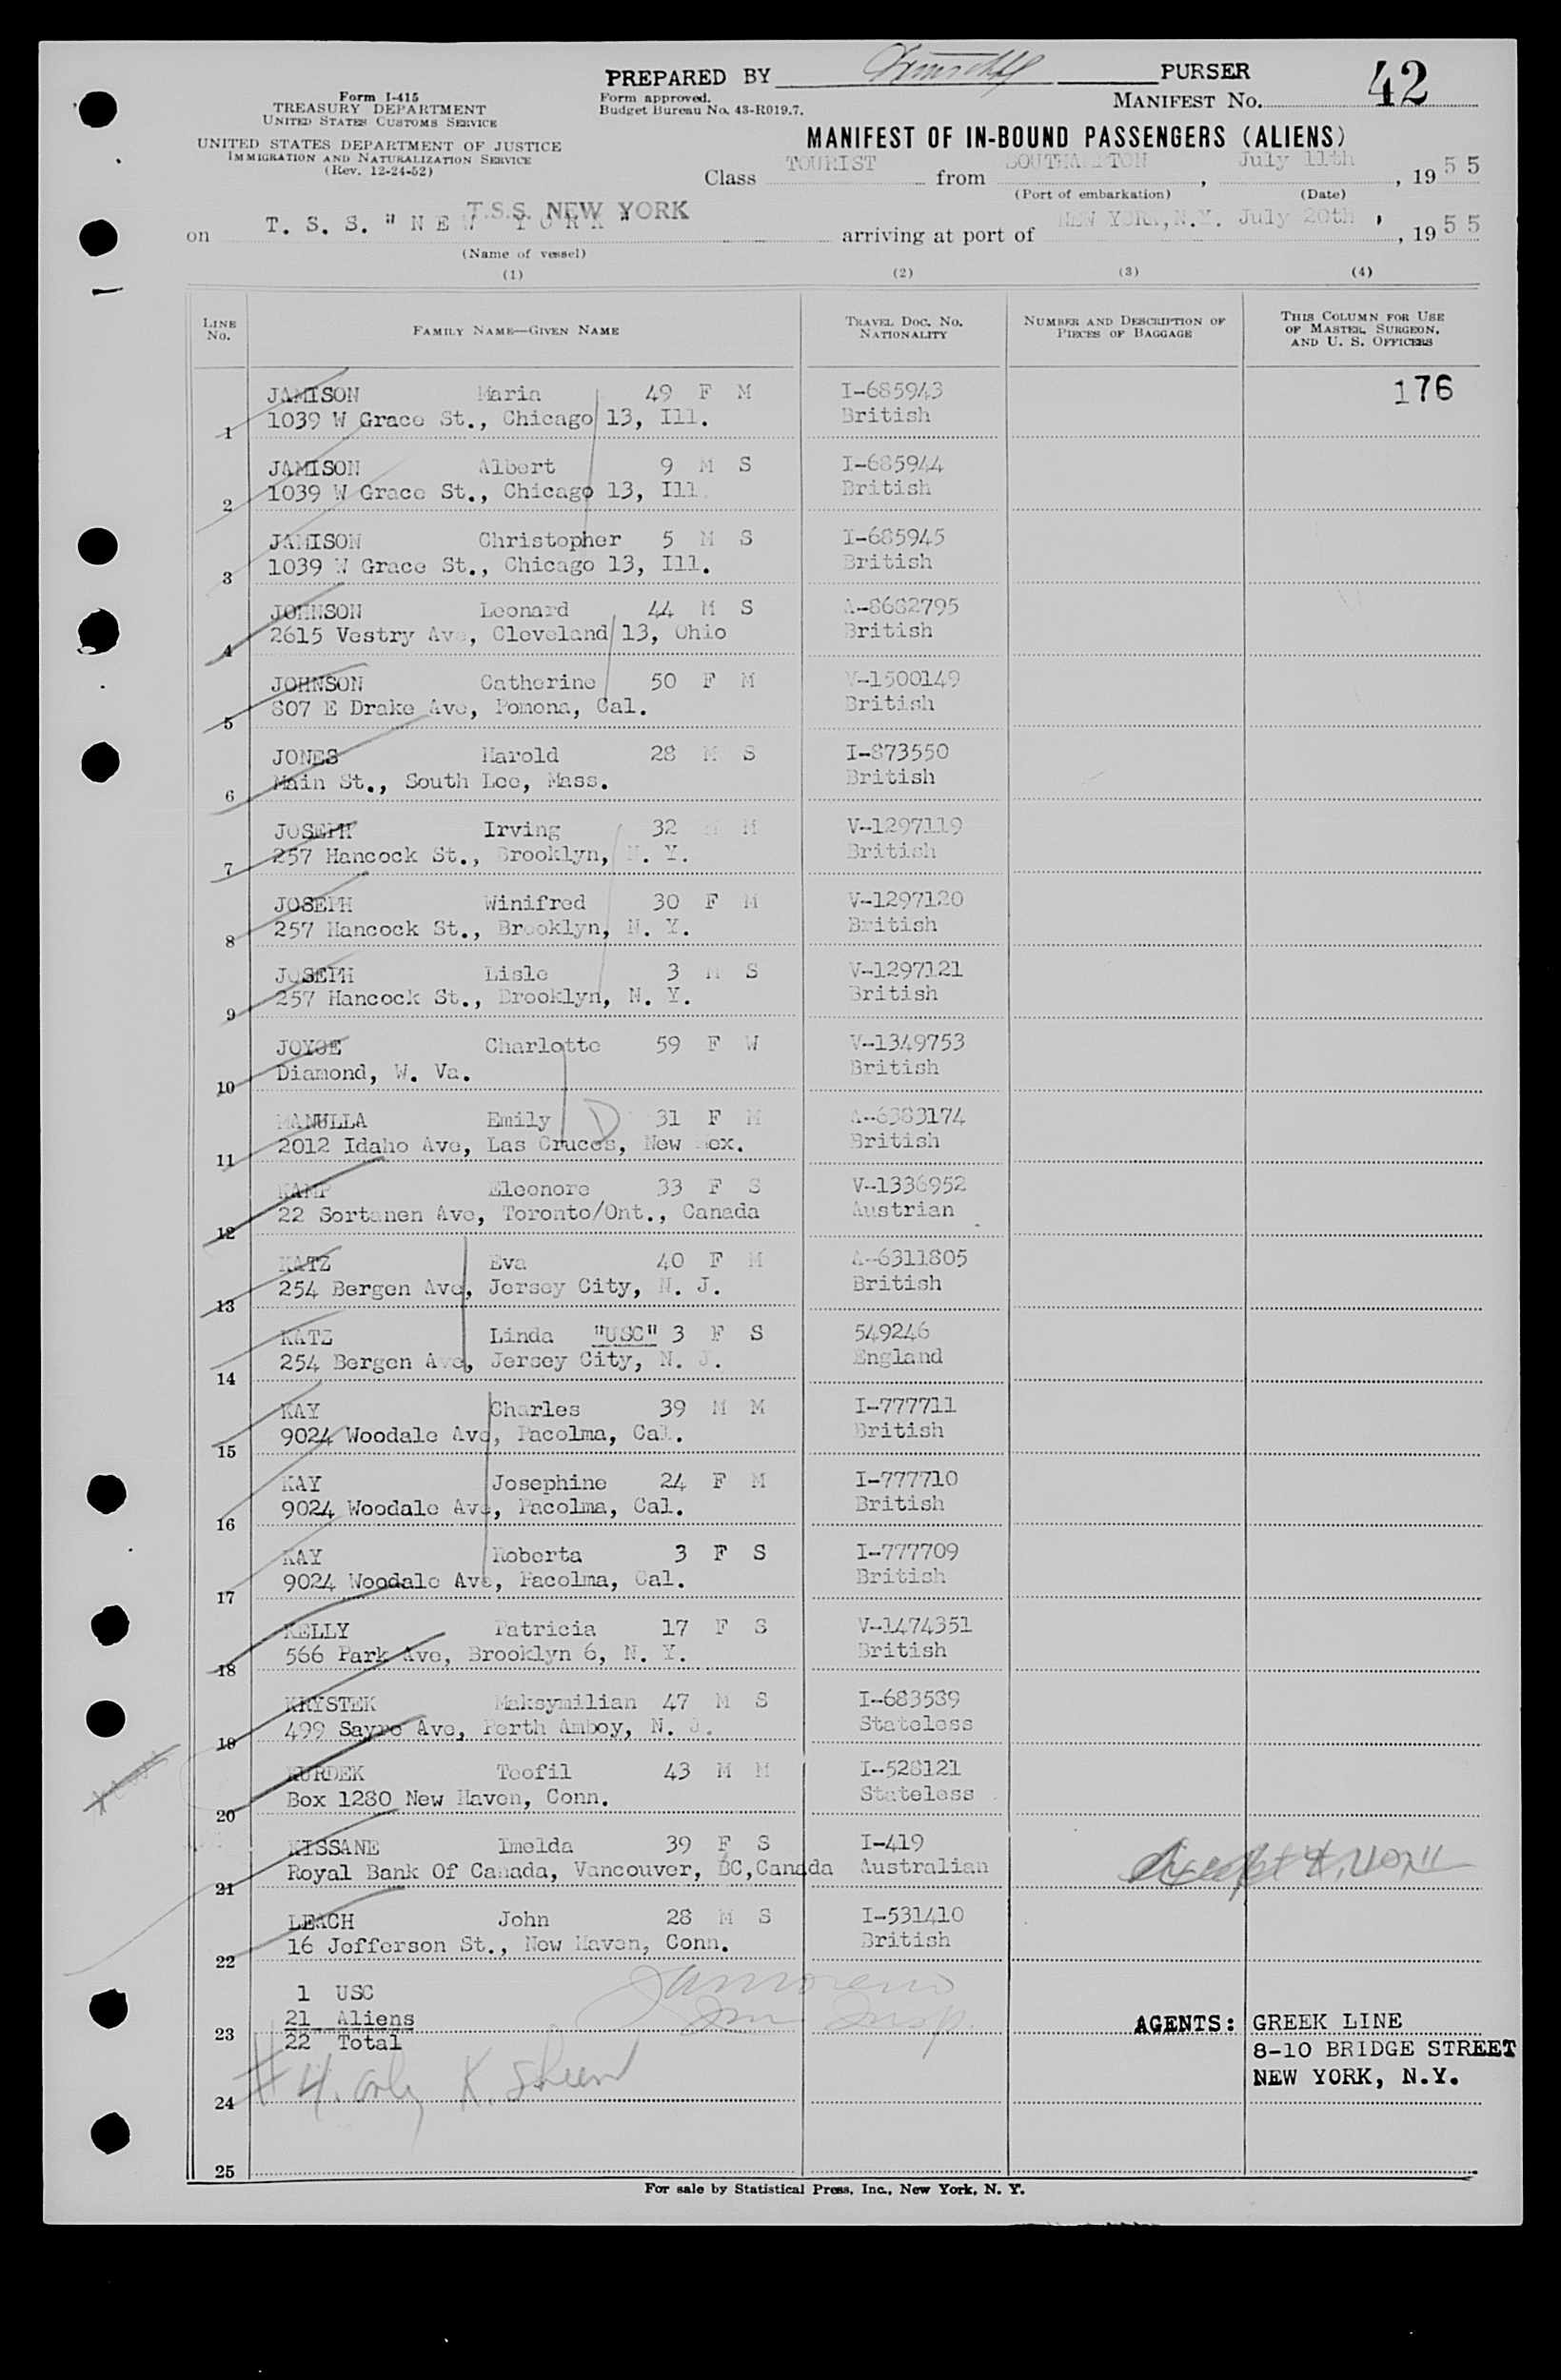 PREPARED BY PURSER
Form I-415
TREASURY DEPARTMENT
UNITED STATES CUSTOMS SERVICE
UNITED STATES DEPARTMENT OF JUSTICE
IMMIGRATION AND NATURALIZATION SERVICE
(Rev. 12-24-52)
Form approved.
Budget Bureau No. 43-R019.7.
MANIFEST NO. 42
MANIFEST OF IN-BOUND PASSENGERS (ALIENS)
Class TOURIST from SOUTHAMPTON, July 11th, 1955
(Port of embarkation) (Date)
on T. S. S. "NEW YORK" T.S.S. NEW YORK arriving at port of NEW YORK, N.Y. July 20th, 1955
(Name of vessel)
(1) (2) (3) (4)
LINE NO. FAMILY NAME—GIVEN NAME TRAVEL DOC. NO. NATIONALITY NUMBER AND DESCRIPTION OF PIECES OF BAGGAGE THIS COLUMN FOR USE OF MASTER, SURGEON, AND U. S. OFFICERS
JAMISON Maria 49 F M I-685943 176
1 1039 W Grace St., Chicago 13, Ill. British
JAMISON Albert 9 M S I-685944
2 1039 W Grace St., Chicago 13, Ill. British
JAMISON Christopher 5 M S I-685945
3 1039 W Grace St., Chicago 13, Ill. British
JOHNSON Leonard 44 M S A-8682795
4 2615 Vestry Ave, Cleveland 13, Ohio British
JOHNSON Catherine 50 F M V-1500149
5 807 E Drake Ave, Pomona, Cal. British
JONES Harold 28 M S I-873550
6 Main St., South Lee, Mass. British
JOSEPH Irving 32 M M V-1297119
7 257 Hancock St., Brooklyn, N. Y. British
JOSEPH Winifred 30 F M V-1297120
8 257 Hancock St., Brooklyn, N. Y. British
JOSEPH Lisle 3 M S V-1297121
9 257 Hancock St., Brooklyn, N. Y. British
JOYCE Charlotte 59 F W V-1349753
10 Diamond, W. Va. British
MANULLA Emily D 31 F M A-6383174
11 2012 Idaho Ave, Las Cruces, New Mex. British
KAMP Eleonore 33 F S V-1336952
12 22 Sortanen Ave, Toronto/Ont., Canada Austrian
KATZ Eva 40 F M A-6311805
13 254 Bergen Ave, Jersey City, N. J. British
KATZ Linda "USC" 3 F S 549246
14 254 Bergen Ave, Jersey City, N. J. England
KAY Charles 39 M M I-777711
15 9024 Woodale Ave, Pacolma, Cal. British
KAY Josephine 24 F M I-777710
16 9024 Woodale Ave, Pacolma, Cal. British
KAY Roberta 3 F S I-777709
17 9024 Woodale Ave, Pacolma, Cal. British
KELLY Patricia 17 F S V-1474351
18 566 Park Ave, Brooklyn 6, N. Y. British
KRYSTEK Maksymilian 47 M S I-683589
19 499 Sayre Ave, Perth Amboy, N. J. Stateless
KURDEK Teofil 43 M M I-528121
20 Box 1280 New Haven, Conn. Stateless
KISSANE Imelda 39 F S I-419
21 Royal Bank Of Canada, Vancouver, BC, Canada Australian
LEACH John 28 M S I-531410
22 16 Jefferson St., New Haven, Conn. British
1 USC
21 Aliens
23 22 Total
AGENTS: GREEK LINE
8-10 BRIDGE STREET
NEW YORK, N.Y.
#4. only
24
25
For sale by Statistical Press, Inc., New York, N. Y.